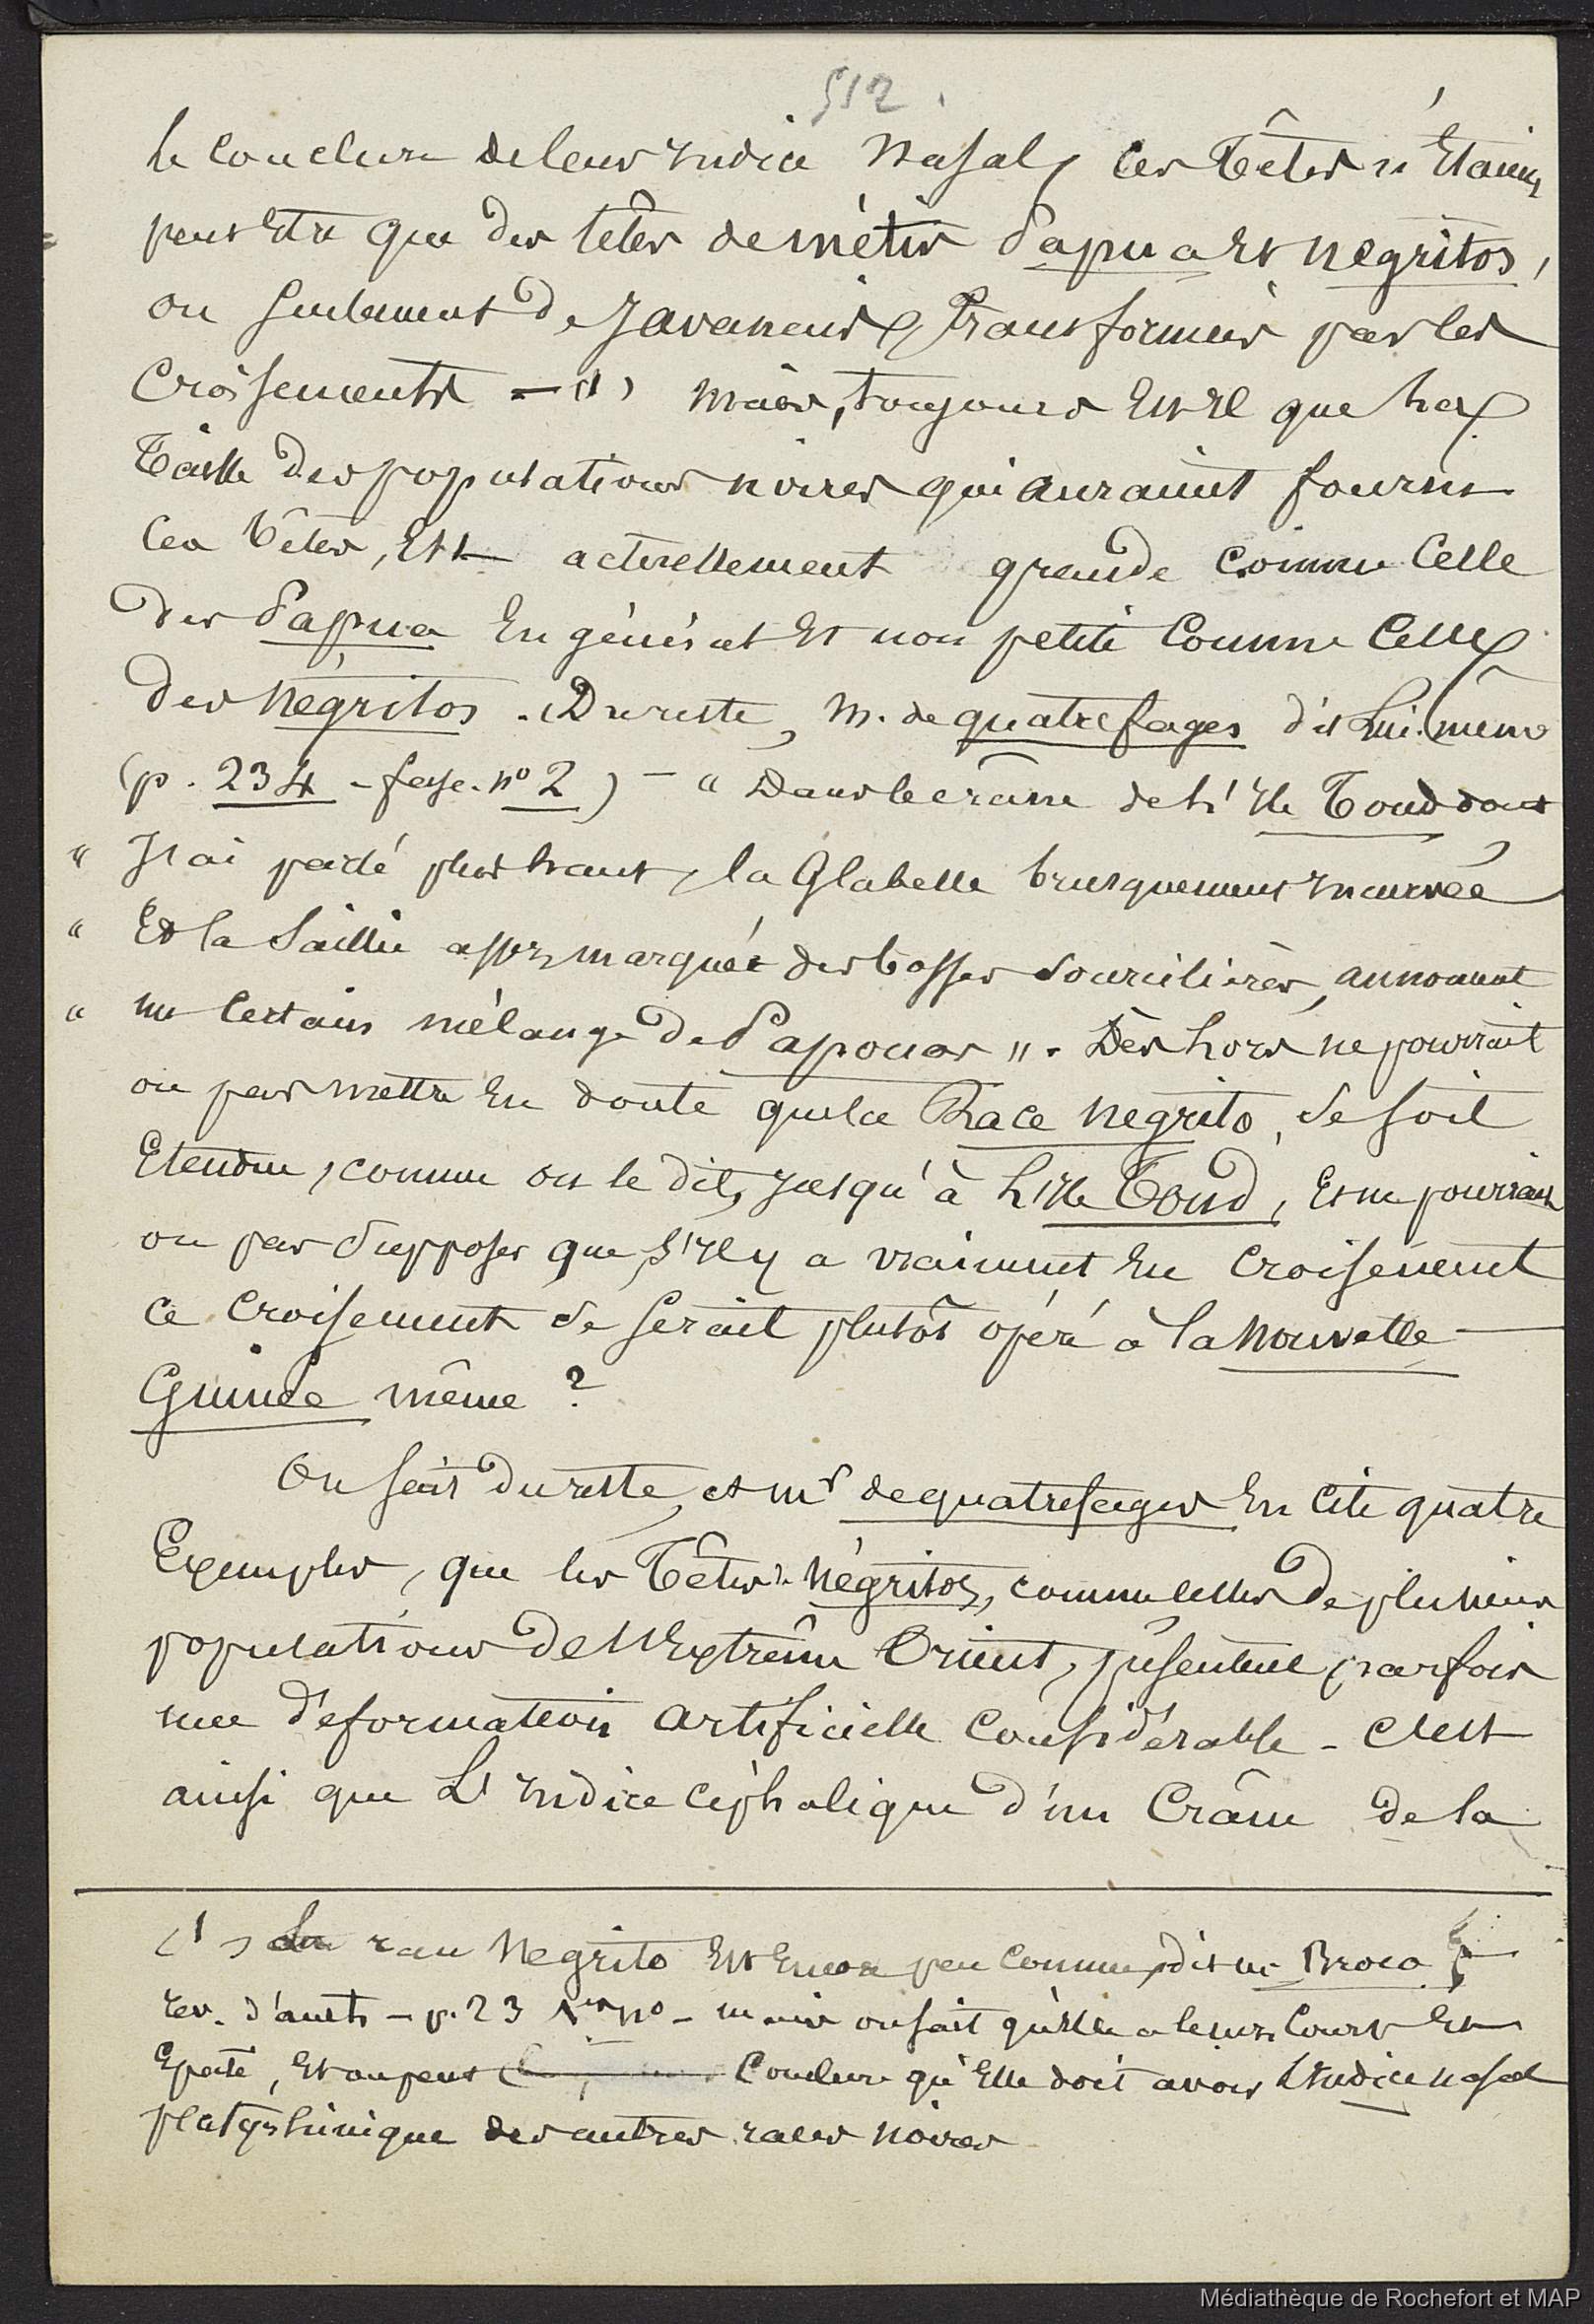 512.
le conclure de leur Indice Nasal, ces Têtes n'Etaient
peut Etre que des têtes de métis Papua Et negritos,
ou seulement de Javanais transformés par les
Croisements – (1) mais, toujours Est Il que la
Taille des populations noires qui auraient fourni
ces Têtes, Est actuellement grande comme Celle
des Papua En général Et non petite Comme Celle
des Négritos. Du reste, M. de quatrefages dit Lui même
(p. 234 – fasc. nº 2) – " Dans le crâne de l'Ile Toud dont
" J'ai parlé plus haut, la Glabelle brusquement Incurvée
" Et la Saillie assez marquée des bosses Sourcilières, annoncent
" un Certain mélange de Papouas ". Dès lors ne pourrait
on pas mettre En doute que la Race negrito, se soit
Etendue, comme on le dit, Jusqu'à l'Ile Toud, Et ne pourrait
on pas Supposer que s'Il y a vraiment Eu Croisement
ce Croisement se Serait plutôt opéré à la Nouvelle –
Guinée même ?
On sait du reste, et Mr de quatrefages En cite quatre
Exemples, que les Têtes Négritos, comme celles de plusieurs
populations de l'Extrême Orient, présentent parfois
une déformation artificielle Considérable – C'est
ainsi que L'Indice céphalique d'un Crâne de la
(1) La race Negrito Est Encore peu Connue, dit M. Broca
rev. d'anth – p. 23 nº – mais on sait qu'Elle a le nez Court Et
Epaté, Et on peut Conclure qu'Elle doit avoir l'Indice nasal
platyrhinique des autres races Noires
Médiathèque de Rochefort et MAP